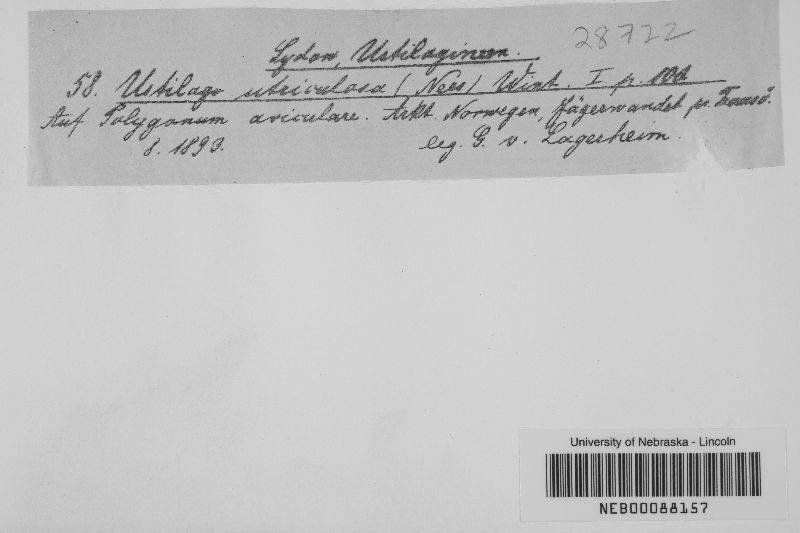 28722
Sydow, Ustilagineen.
58. Ustilago utriculosa (Nees) Wint. I p. 100
Auf Polygonum aviculare. Arkt. Norwegen, Jägervandet pr. Tromsö.
8. 1893. leg. G. v. Lagerheim.
University of Nebraska - Lincoln
NEB00088157